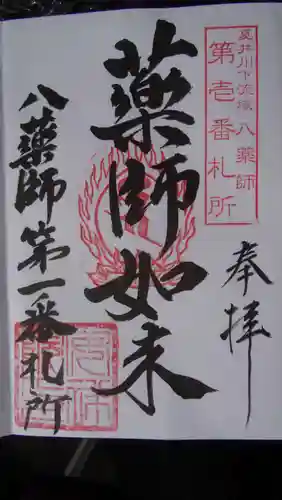 夏井川下流域八薬師
第壱番札所
奉拝
薬師如来
八薬師第一番札所